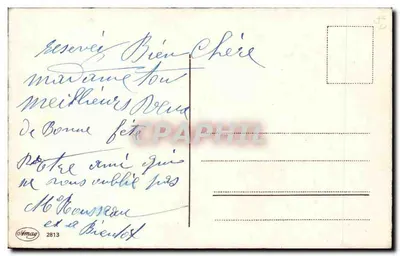 recevez Bien Chère
madame tou
meilheurs Veux
de Bonne fête
Votre ami qui
ne vous oublie pas
Me Rousseau
et a Bientot
CPAPHIL
2813